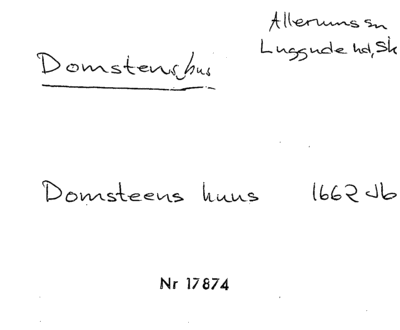 Allerums sn
Luggude hd, Sk
Domstenshus
Domsteens huus 1662 Jb
Nr 17874